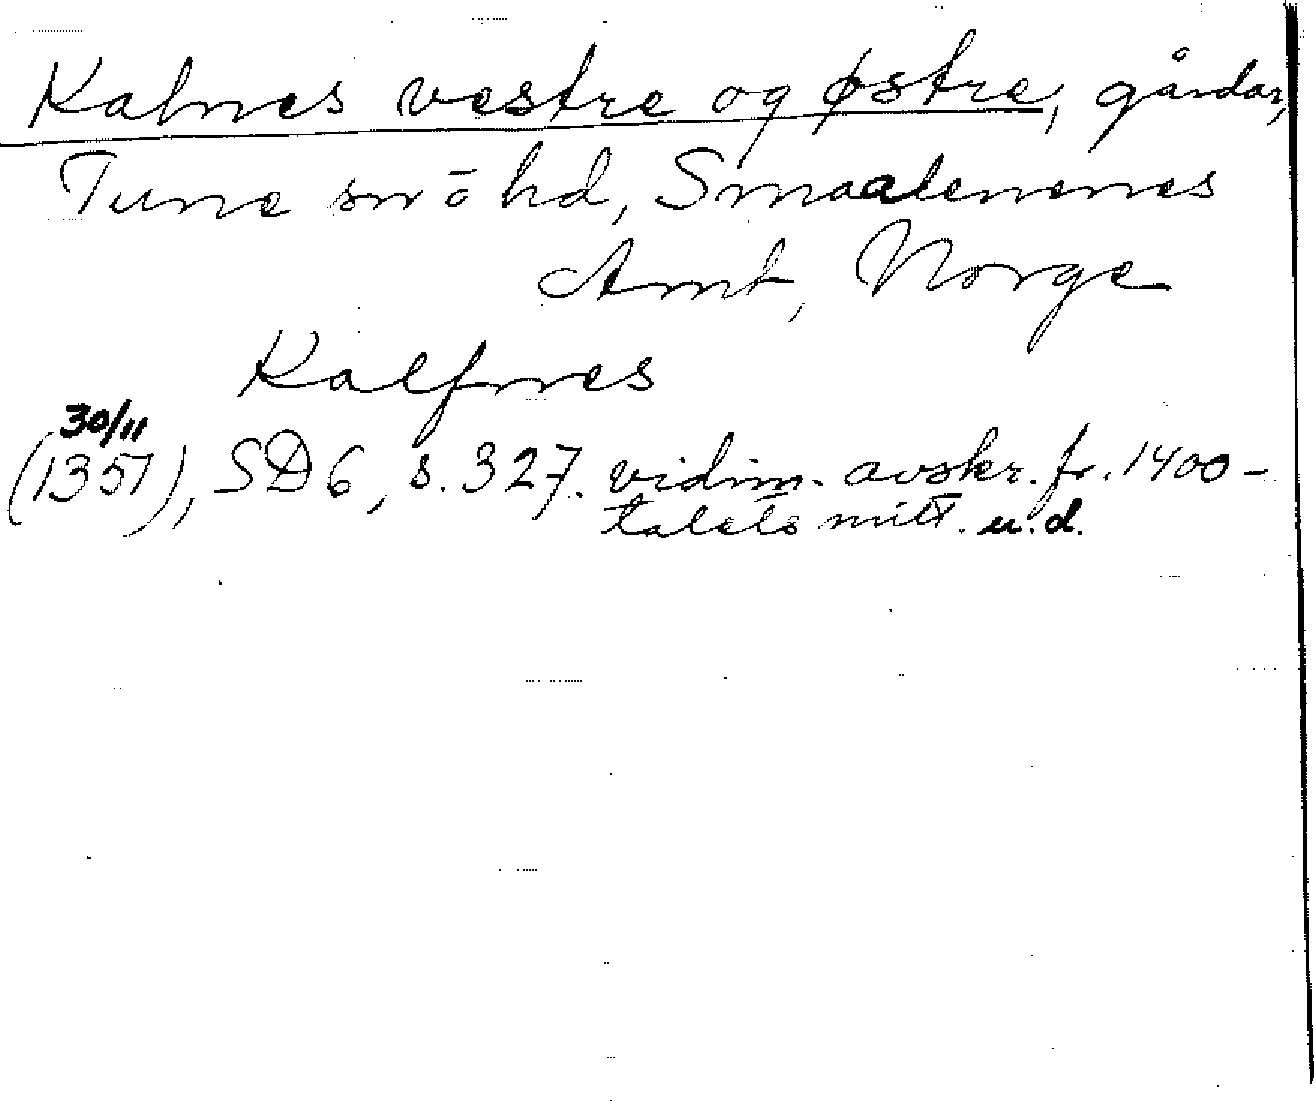 Kalnes vestre og østre, gårdar,
Tune sn o hd, Smaalenenes
Amt, Norge
Kalfnes
30/11
(1351), SD6, s. 327. vidim. avskr. fr. 1400-
talets mitt. u.d.